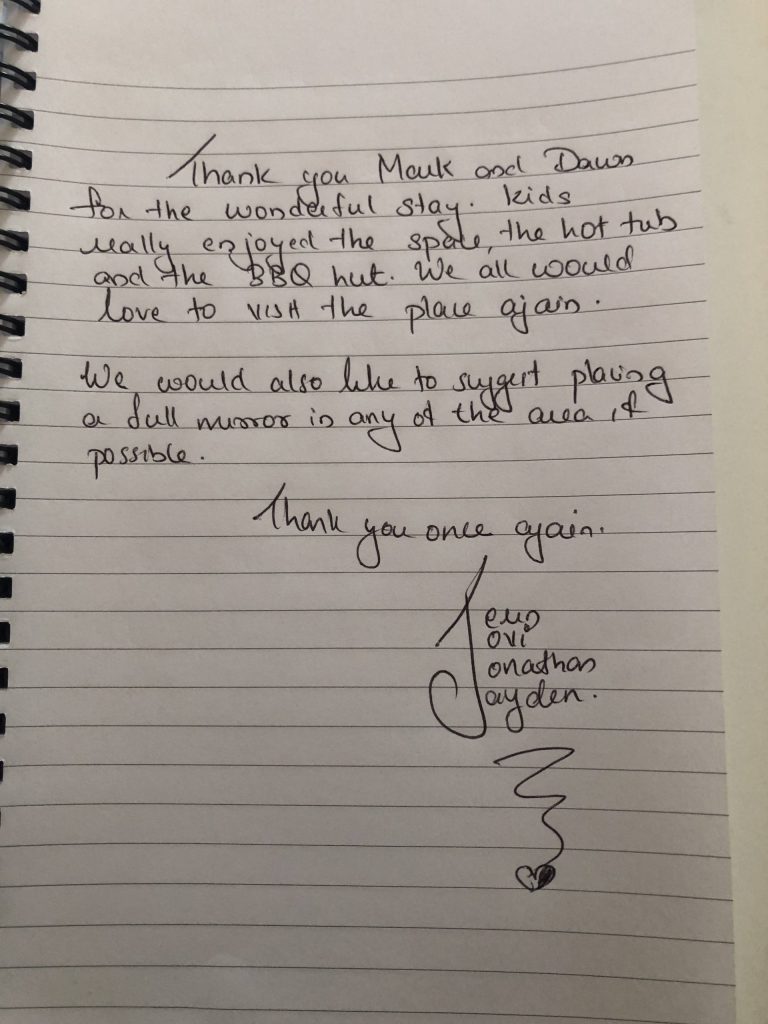 Thank you Mark and Dawn
for the wonderful stay. kids
really enjoyed the space, the hot tub
and the BBQ hut. We all would
love to visit the place again.
We would also like to suggest placing
a full mirror in any of the area if
possible.
Thank you once again.
Jovi
Jonathan
Jayden.